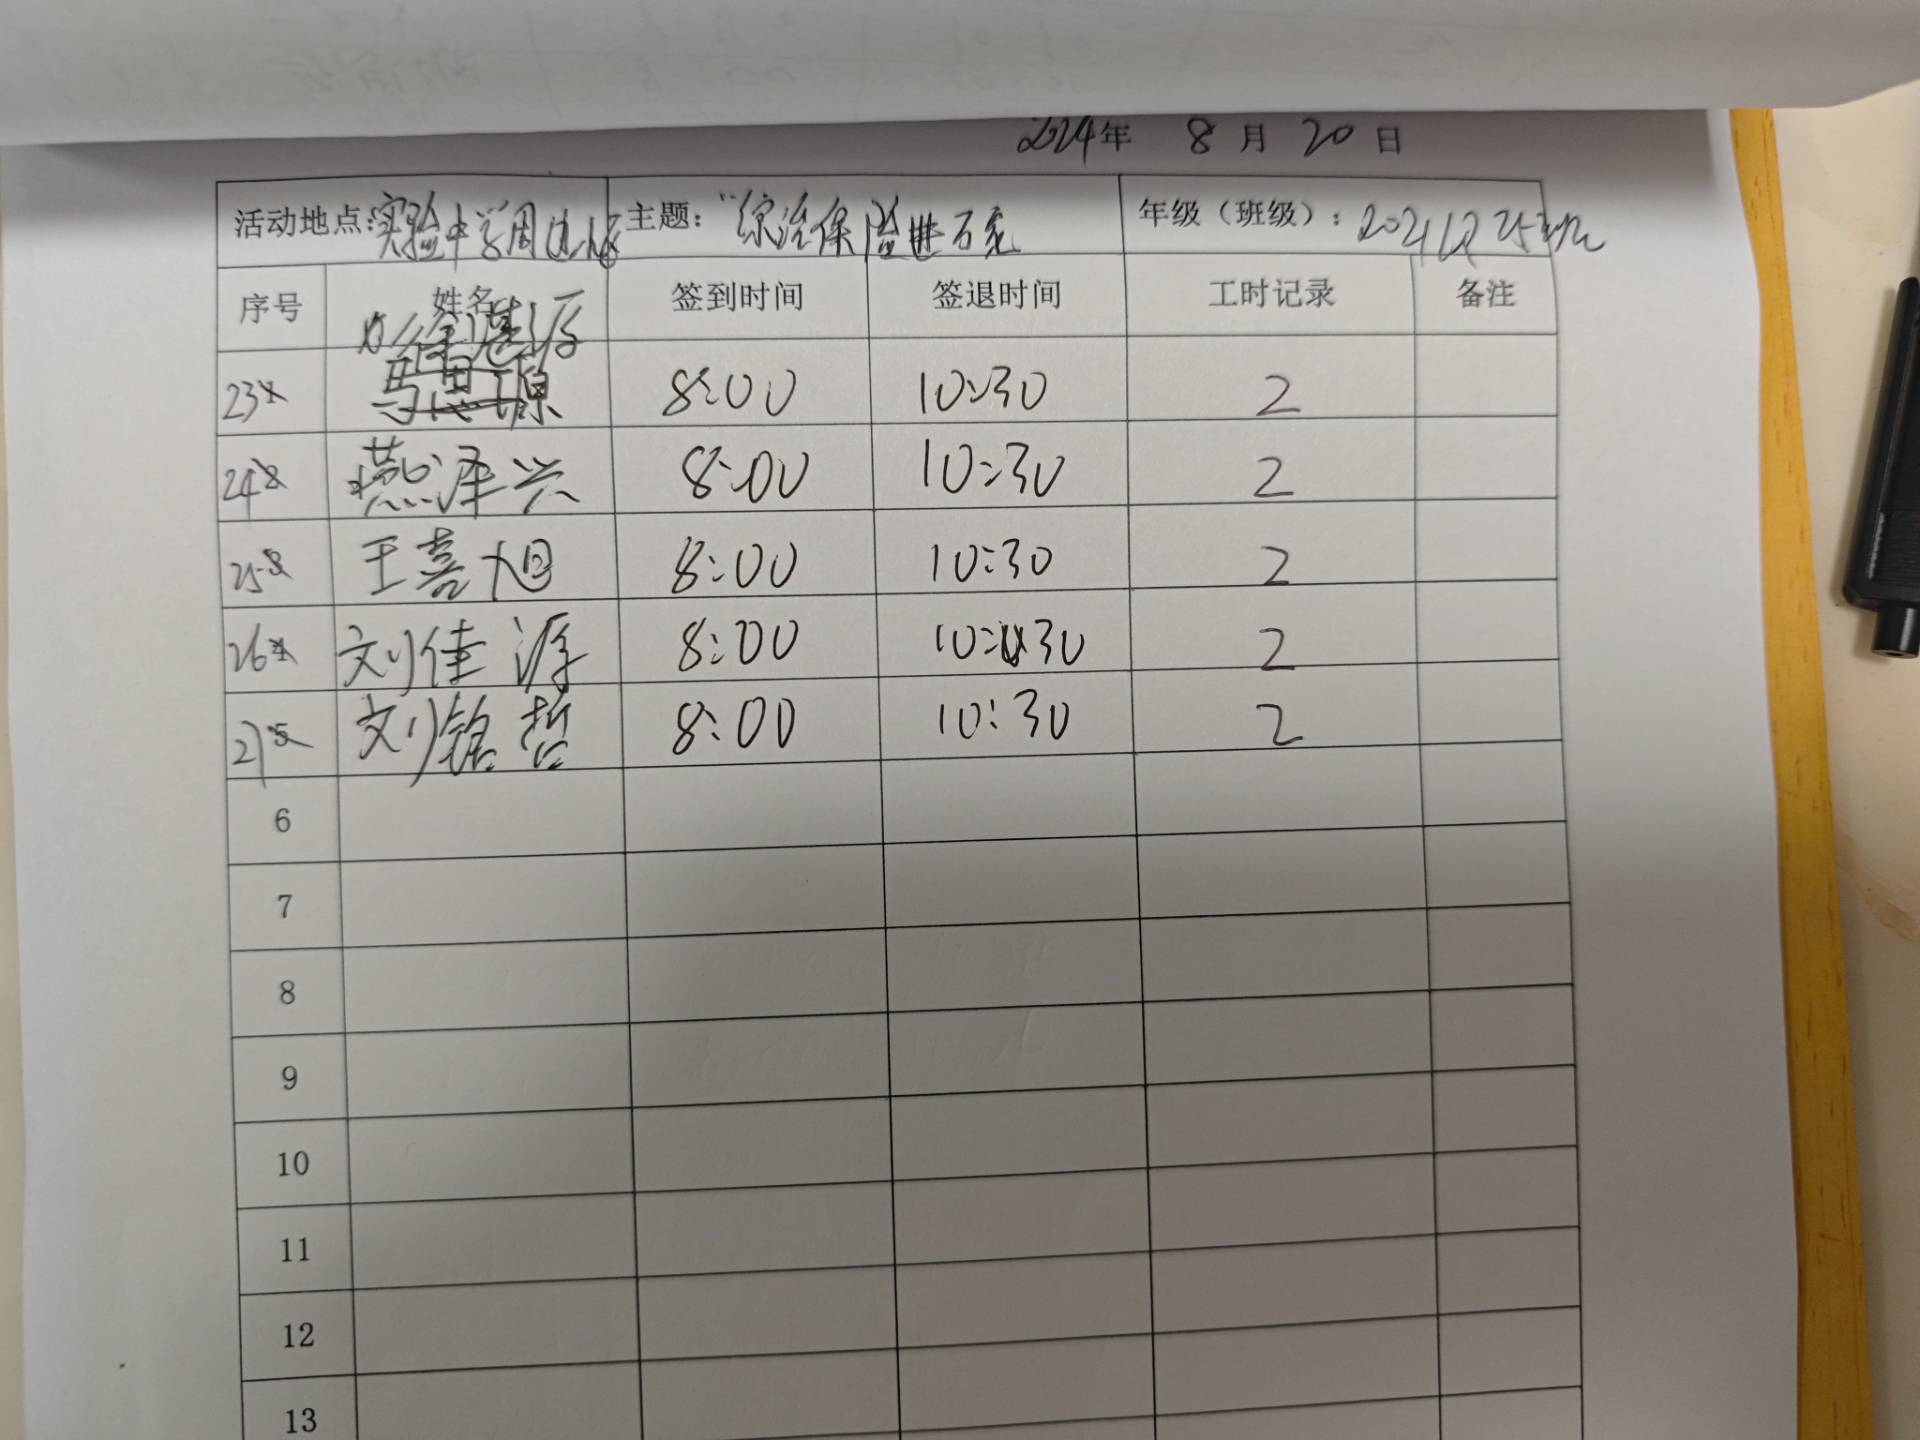 2024年 8月 20日
活动地点:实验中学周边 主题:“综治保险进万家 年级(班级):2021级25班
序号 姓名 签到时间 签退时间 工时记录 备注
23 8:00 10:30 2
24 燕泽兴 8:00 10:30 2
25 王喜旭 8:00 10:30 2
26 刘佳源 8:00 10:30 2
27 刘铭哲 8:00 10:30 2
6
7
8
9
10
11
12
13